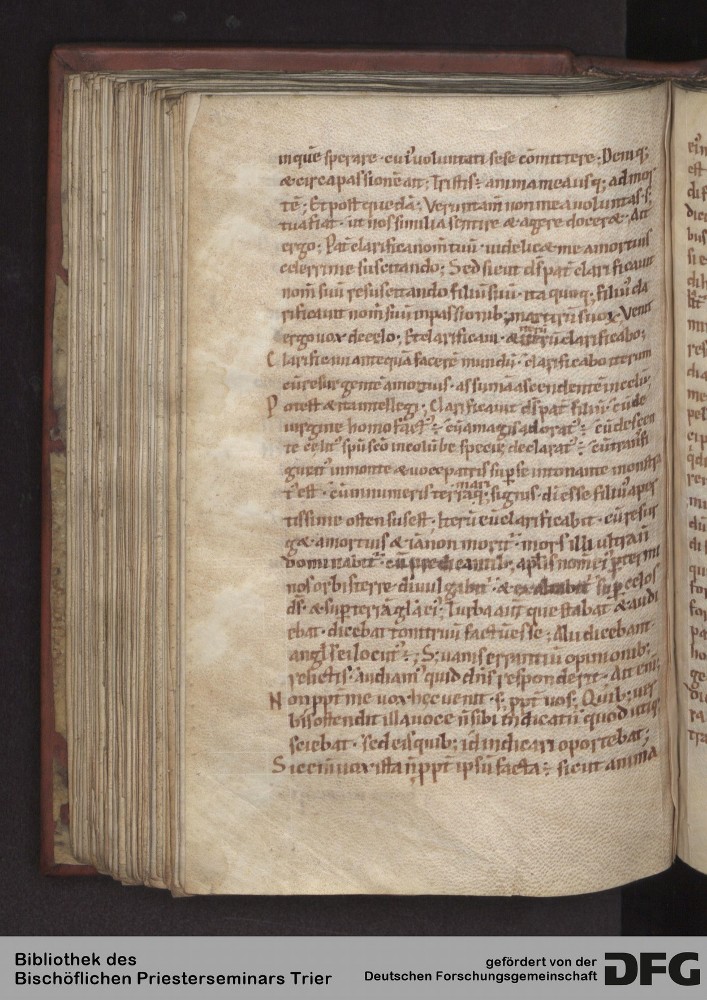 inquē sperare · cui᷒ uoluntati sese cōmittere; Deniq;
& circa passionē ait; Tristis ÷ anima mea usq; ad mor
tē; Et post quedā; Verumtam̄ non mea uoluntas · s;
tua fiat · ut nos similia sentire & agere docer& · Ait
ergo; Pat̄ clarifica nom̄ tuū · uidelic& me a mortuis
celerrime suscitando; Sed sicut ds̄ pat̄ clarificauit
nom̄ suū resuscitando filiū suū · ita quoq; filiū cla
rificauit nom̄ suū in passionib; martirū suoꝝ · Venit
ergo uox de celo; Et clarificaui · & iterū clarificabo;
Clarificaui antequā facerē mundū · clarificabo iterum
cū resurgentē a mortuis · assumā ascendentē in celū;
Potest & ita intellegi; Clarificauit ds̄ pat̄ filiū · cū de
uirgine homo fact᷒ ÷ cū a magis adorat᷒ ÷ cū descen
te celit᷒ spū sc̄o in colūbe specie declarat᷒ ÷ cū transfi
gurat᷒ in monte & uoce patris sup̄ se intonante monstra
t᷒ est · cū innumeris terra mariq; signis · di esse filiū aper
tissime ostensus est · Iterū eū clarificabit · cū resur
g& a mortuis & iā non morit᷒ · mors illi ultra n̄
dominabit᷒ · cū predicantib; aplis nom̄ ei᷒ p̄ termi
nos orbis terre diuulgabit᷒ · & exaltabit᷒ sup̄ celos
ds̄ · & sup̄ terrā gla ei᷒; Turba aut̄ que stabat & audi
ebat · dicebat tonitruū factū esse; Alii dicebant
angl's ei locut᷒ ÷; S; uanis errantiū opinionib;
relictis · audiam᷒ quid dn̄s responderit · Ait enī;
Non ppt̄ me uox hec uenit · s; ppt̄ uos; Quib; uer
bis ostendit illa uoce n̄ sibi indicatū quod utiq;
sciebat · sed eis quib; id indicari oportebat;
Sic enī uox ista n̄ ppt̄ ipsū facta ÷ sicut anima
Bibliothek des
Bischöflichen Priesterseminars Trier
gefördert von der
Deutschen Forschungsgemeinschaft
DFG